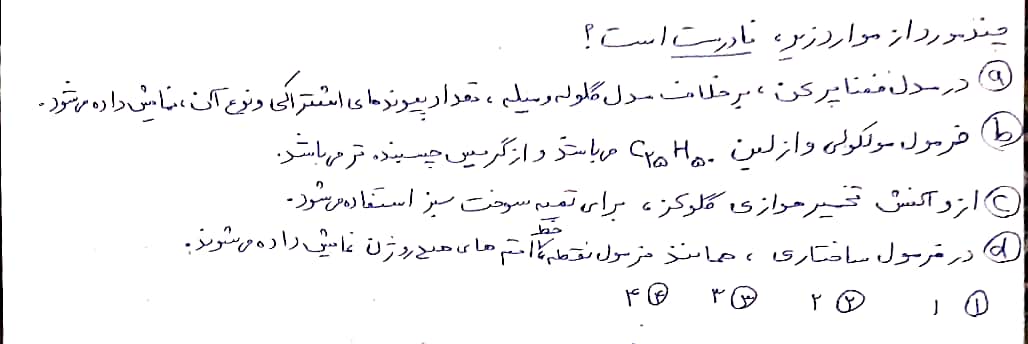 چند مورد از موارد زیر، نادرست است؟
ⓐ در مدل فضا پر کن، برخلاف مدل گلوله و میله، تعداد پیوندهای اشتراکی و نوع آن، نمایش داده می‌شود.
ⓑ فرمول مولکولی وازلین C۲۵H۵۰ می‌باشد و از گریس چسبنده تر می‌باشد.
ⓒ از واکنش تخمیر هوازی گلوکز، برای تهیه سوخت سبز استفاده می‌شود.
ⓓ در فرمول ساختاری، همانند فرمول نقطه خط اتم های هیدروژن نمایش داده می‌شوند.
① ۱ ② ۲ ③ ۳ ④ ۴